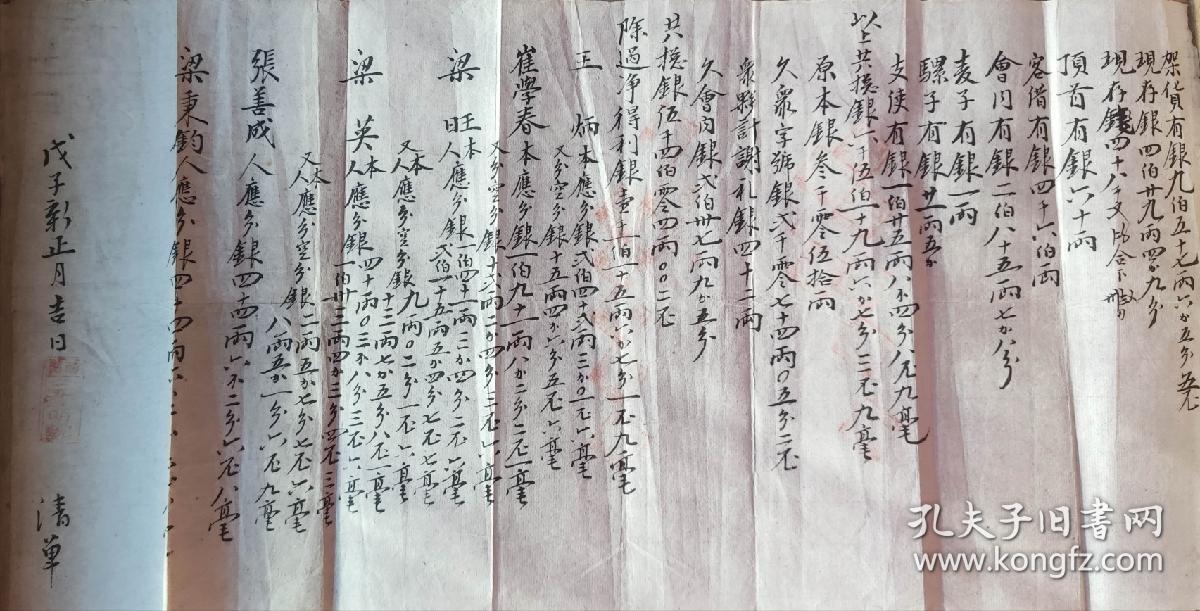 架貨有銀九伯五十七兩六分五厘
現存銀四伯廿九兩四分九分
現存錢四十八千文
頂首有銀六十兩
客借有銀四十六伯兩
會門有銀二伯八十五兩七分八分
麦子有銀一兩
騾子有銀廿一兩五
支使有銀一伯廿五兩八分四分八厘九毫
以上共捻銀八千伍伯一十九兩六分七分三厘九毫
原本銀叁千零伍拾兩
欠衆字號銀弍千零七十四兩〇五分二厘
衆夥計謝礼銀四十二兩
欠會內銀弍伯卅七兩九分五分
共捻銀伍千四伯零四兩〇〇二厘
除過净得利銀壹千一伯一十五兩六分七分一厘九毫
王炳本應分銀弍伯四十弍兩三分〇一厘六毫
又分空分銀十五兩四分六分五厘六毫
崔學春本應分銀一伯九十一兩八分二分二厘一毫
又分空分銀十二兩二分四分三厘一毫
梁旺本人應分銀一伯四十一兩二分四分二厘六毫
弍伯一十五兩五分四分七厘七毫
又本人應分空分銀九兩〇二分一厘六毫
十二兩七分五分八厘一毫
梁英本人應分銀四十兩〇二分八分三厘六毫
一伯卅二兩四分三分四厘三毫
又本人應分空分銀二兩五分七分七厘六毫
八兩五分一分六厘九毫
張善成人應分銀四十四兩六分二分六厘八毫
梁秉鈞人應分銀四十四兩六
戊子新正月吉日
清單
孔夫子旧书网
www.kongfz.com